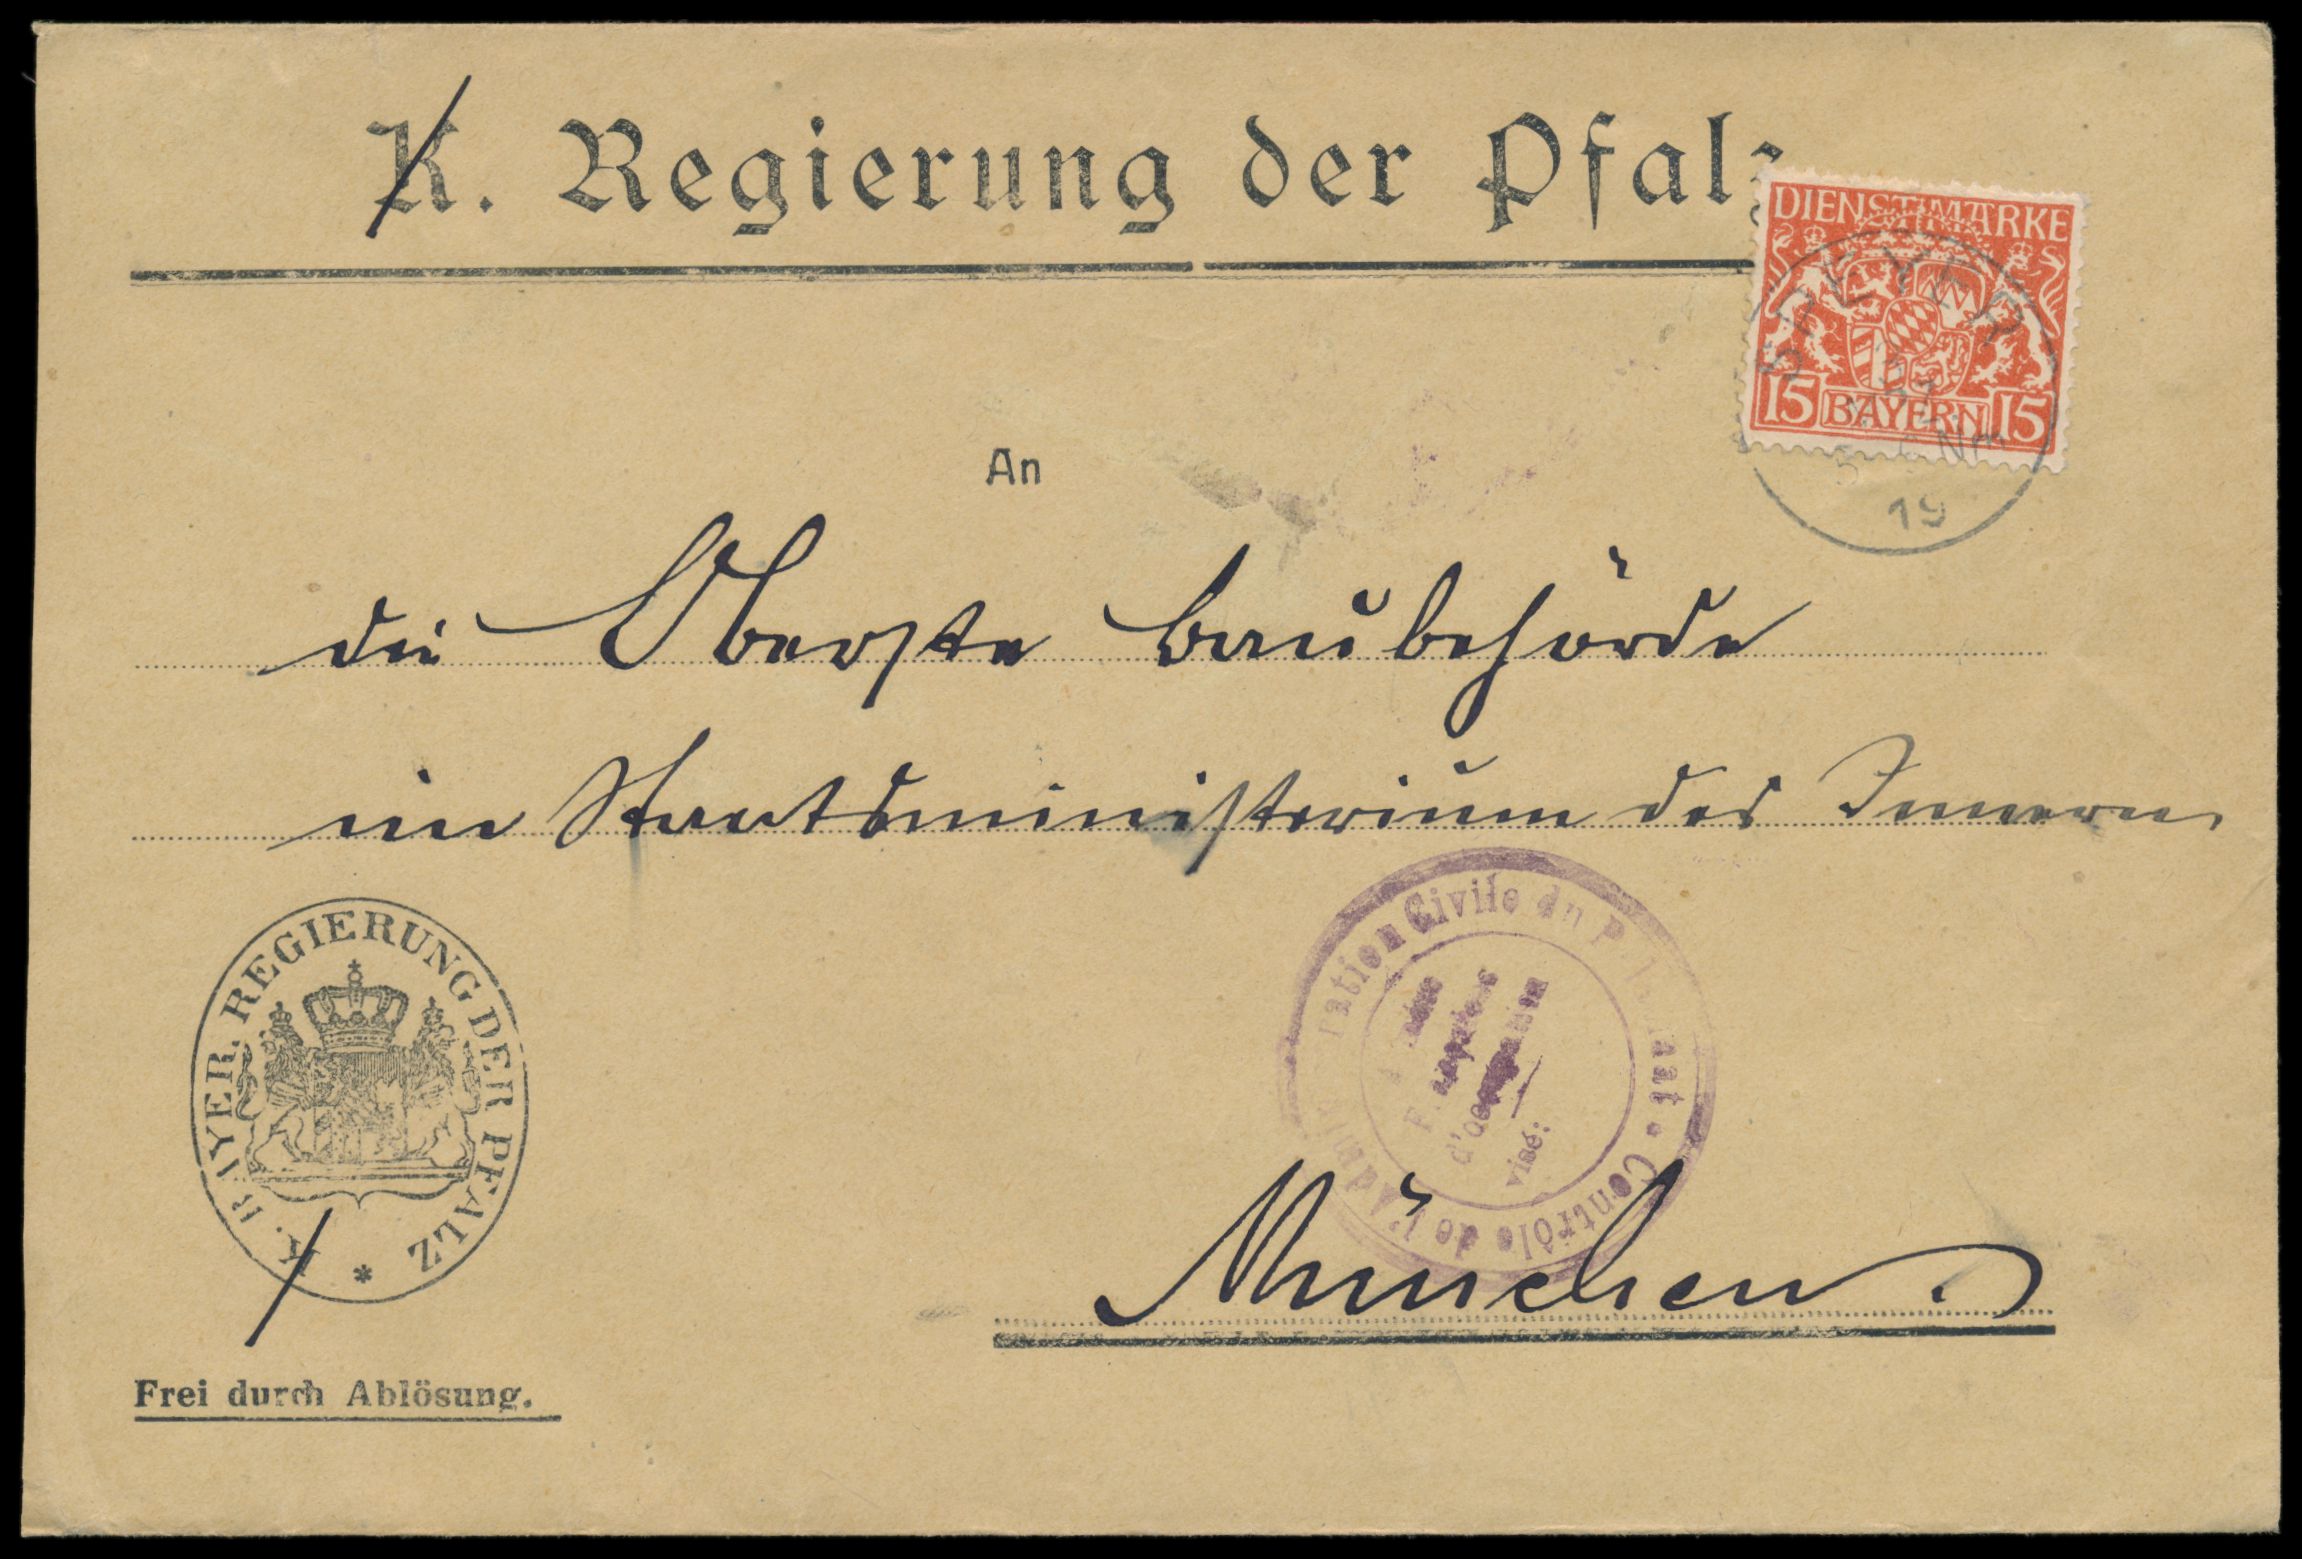 K. Regierung der Pfalz
DIENSTMARKE
15 BAYERN 15
SPEYER
Nm
19
An
die Oberste Baubehörde
im Staatsministerium des Innern
K. BAYER. REGIERUNG DER PFALZ *
Contrôle de l'Administration Civile du Palatinat
Armées
Françaises
d'Occupation
visé:
München.
Frei durch Ablösung.